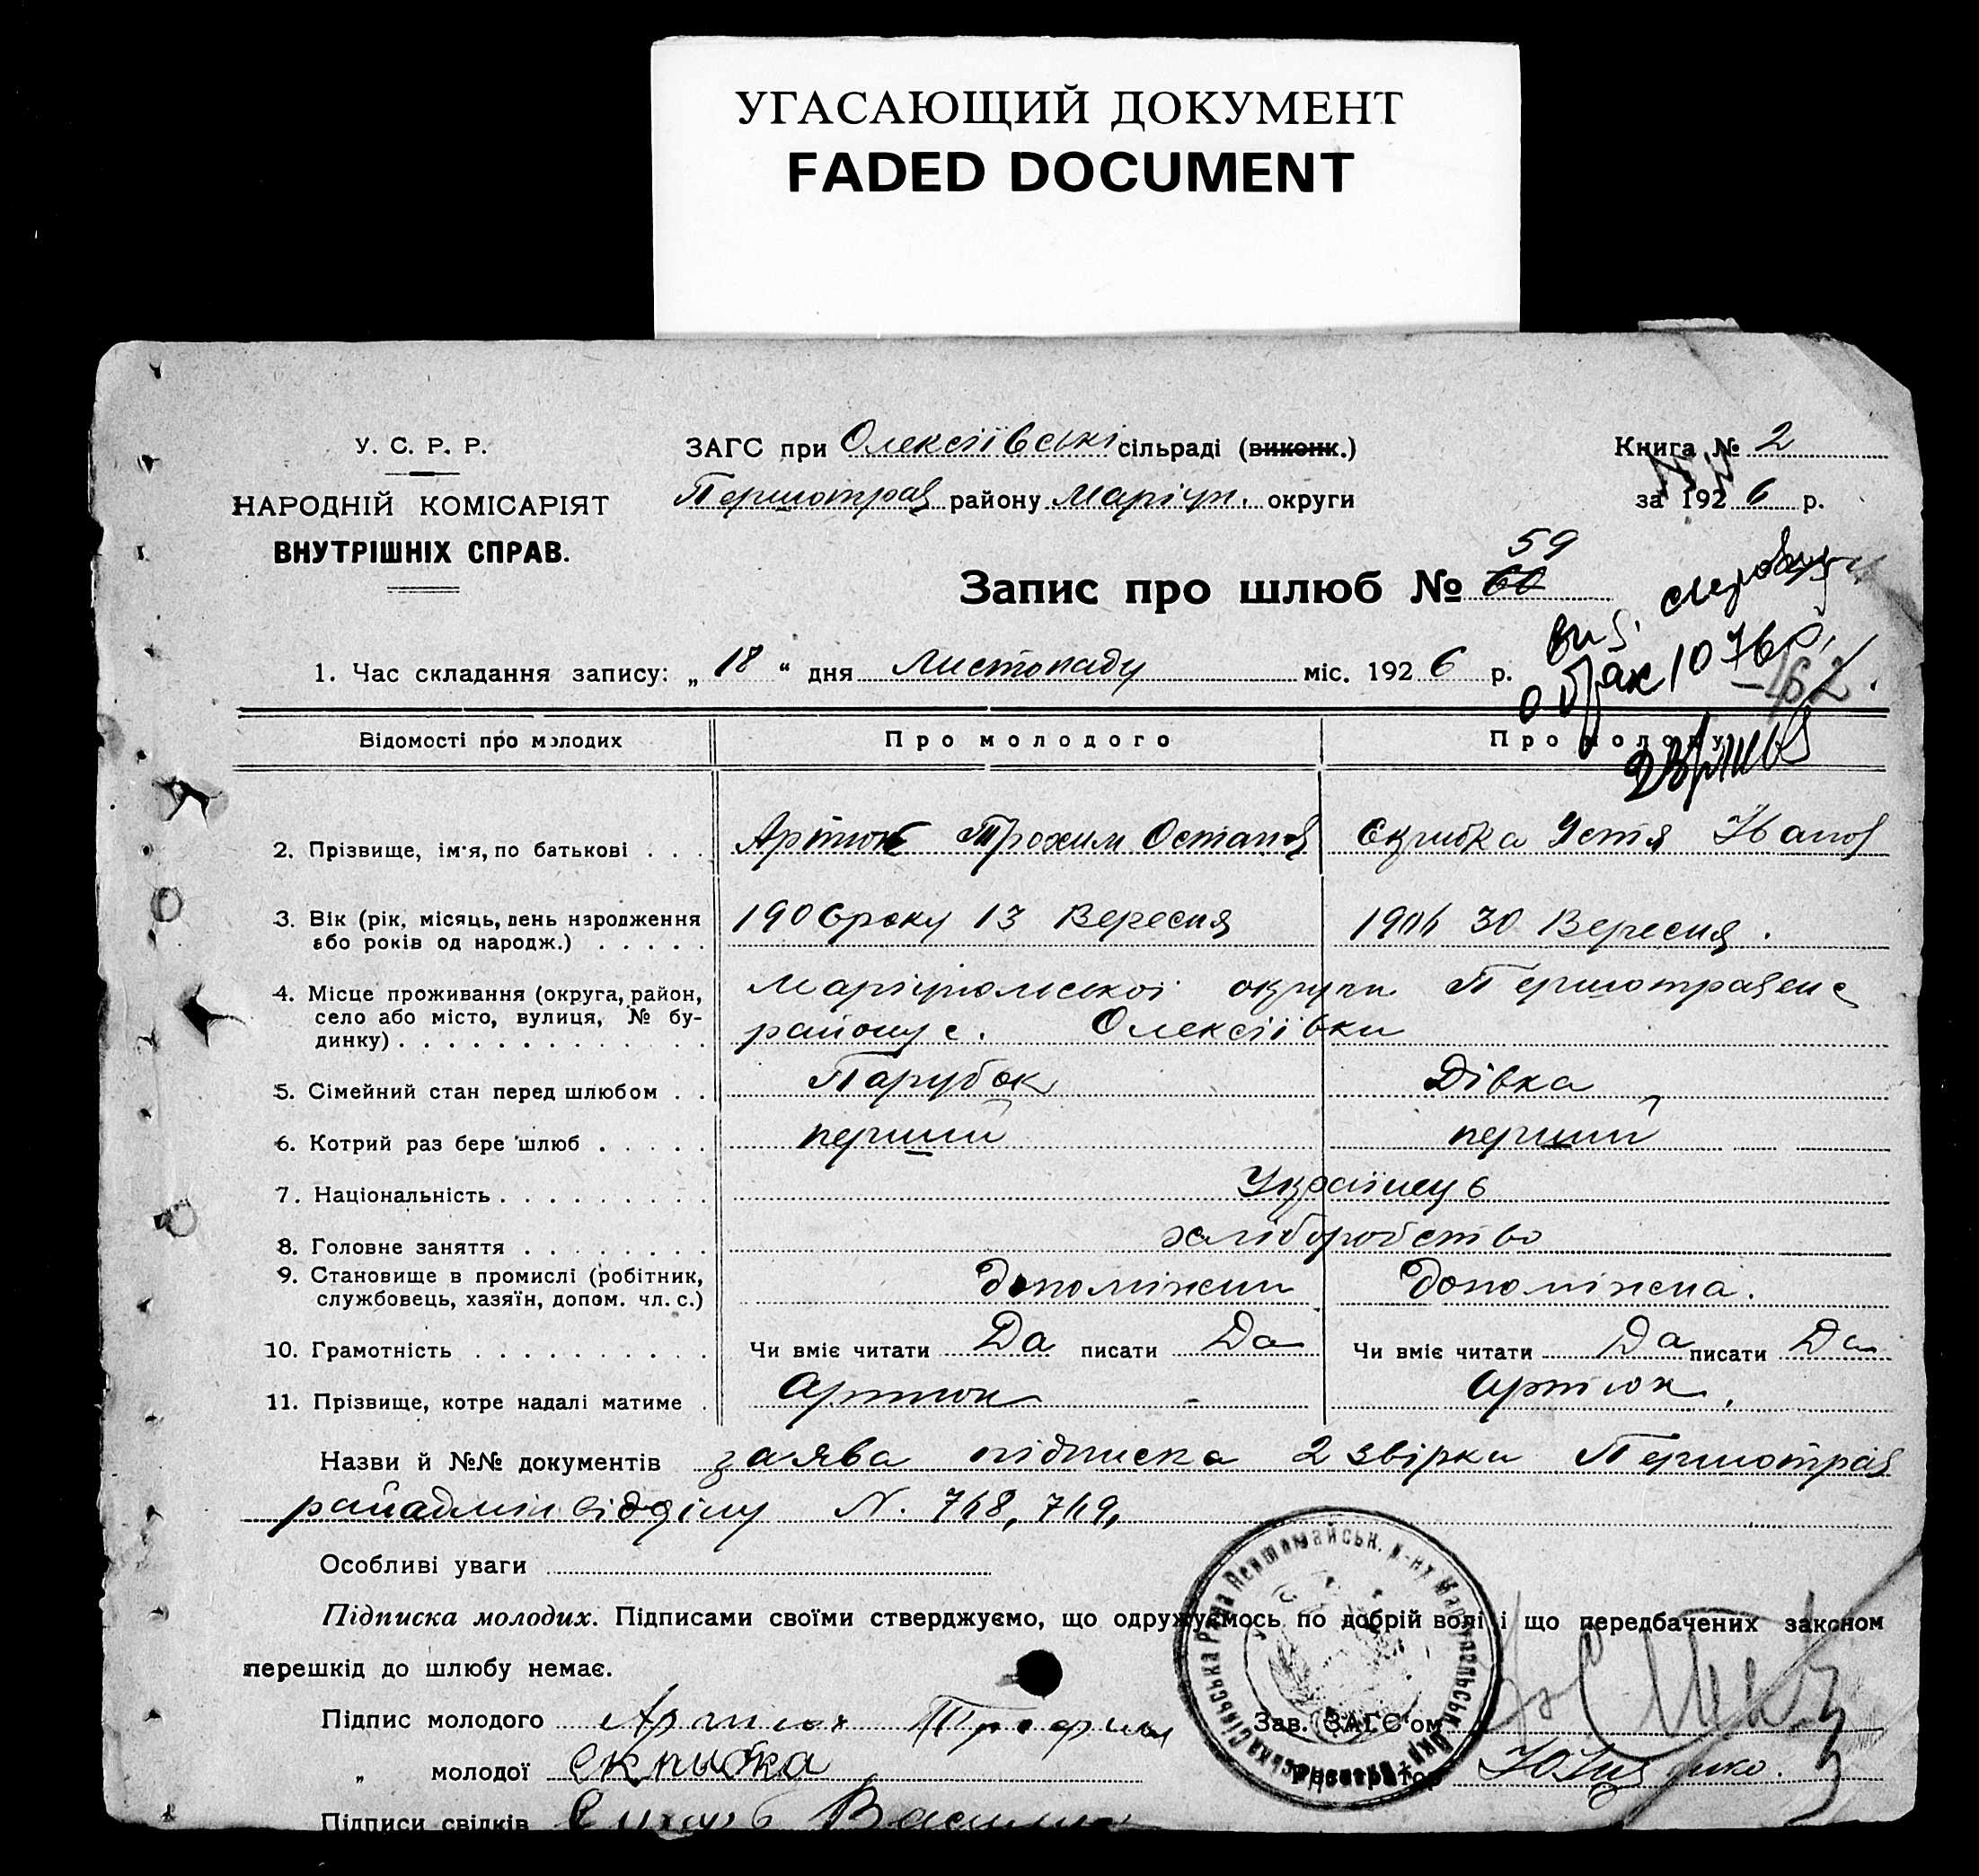 УГАСАЮЩИЙ ДОКУМЕНТ
FADED DOCUMENT
У. С. Р. Р.
НАРОДНІЙ КОМІСАРІЯТ
ВНУТРІШНІХ СПРАВ.
ЗАГС при Олексіївські сільраді (виконк.)
Першотрав району Маріуп. округи
Книга № 2
за 1926 р.
Запис про шлюб № 60 59
1. Час складання запису: „ 18 “ дня Листопаду міс. 1926 р.
о брак 1076
Відомості про молодих Про молодого Про молоду
2. Прізвище, ім'я, по батькові . . . Артюк Трохим Остапов Скрибка Устя Іванов
3. Вік (рік, місяць, день народження 1906 року 13 Вересня 1906 30 Вересня.
або років од народж.) . . . . .
4. Місце проживання (округа, район, Маріюпольської округи Першотравенс
село або місто, вулиця, № бу- району с. Олексіївки
динку) . . . . . . . . . . . . .
5. Сімейний стан перед шлюбом . . Парубок Дівка
6. Котрий раз бере шлюб . . . . . перший перший
7. Національність . . . . . . . . . Українець
8. Головне заняття . . . . . . . . хліборобство
9. Становище в промислі (робітник, допоміжни допоміжна.
службовець, хазяїн, допом. чл. с.)
10. Грамотність . . . . . . . . . . Чи вміє читати Да писати Да Чи вміє читати Да писати Да
11. Прізвище, котре надалі матиме . Артюк Артюк.
Назви й №№ документів заява підписка 2 звірки Першотрав
райадмінвідділу N. 768, 769,
Особливі уваги
Підписка молодих. Підписами своїми стверджуємо, що одружуємось по добрій волі і що передбачених законом
перешкід до шлюбу немає.
Підпис молодого Артюх Трофим
Зав. ЗАГС'ом
„ молодої Скрыбка
Реєстратор
Підписи свідків